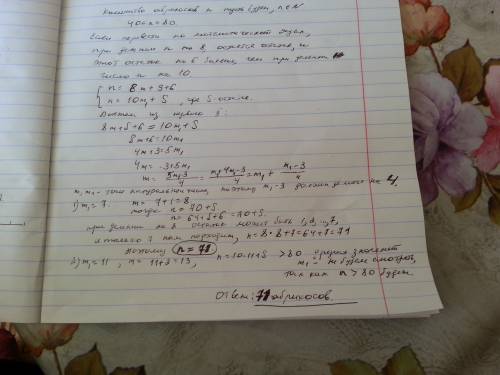 Количество абрикосов n пусть будет, n ∈ N
40 < n < 80.
Если перевести на математический язык,
при делении n на 8, остаётся остаток, и
этот остаток на 6 больше, чем при делении
числа n на 10
{ n = 8m + S + 6
n = 10m₁ + S, где S - остаток.
8m + S + 6 = 10m₁ + S
8m + 6 = 10m₁
4m + 3 = 5m₁
4m = -3 + 5m₁
m = (5m₁ - 3)/4 = (m₁ + 4m₁ - 3)/4 = m₁ + (m₁ - 3)/4
m, m₁ - натуральные числа, поэтому m₁ - 3 должно делится на 4.
1) m₁ = 7. m = 7 + 1 = 8.
тогда n = 70 + S
n = 64 + S + 6 = 70 + S.
при делении на 8 остаток может быть 1, 2, ..., 7,
только 7 нам подходит, n = 8 * 8 + 7 = 64 + 7 = 71
поэтому n = 71
2) m₁ = 11, m = 11 + 2 = 13, n = 10·11 + S > 80
m₁ - не будем смотреть,
так как n > 80 будет.
Ответ: 71 абрикосов.